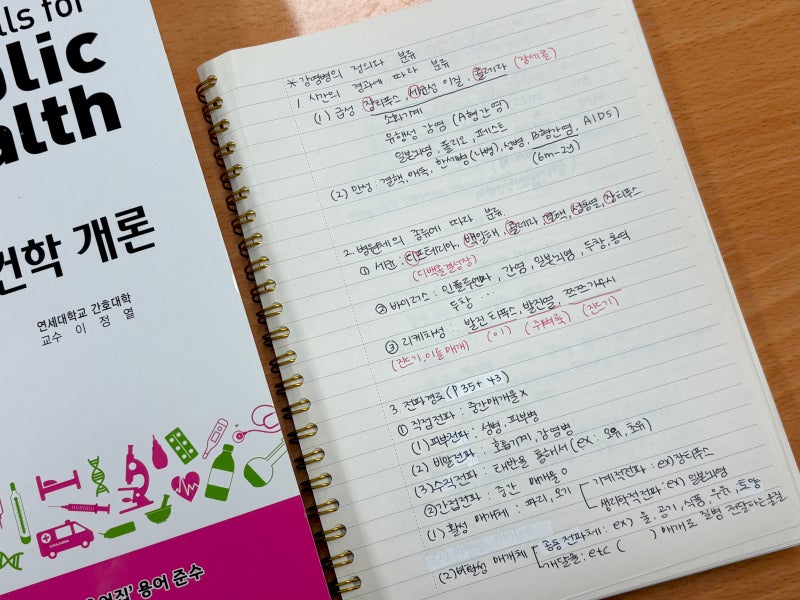 lls for
blic
alth
건학 개론
연세대학교 간호대학
교수 이 정 열
용어 준수
* 감염병의 정의와 분류
1. 시간의 경과에 따라 분류
(1) 급성 장티푸스, 세균성 이질, 콜레라 (장세콜)
소화기계
유행성 감염 (A형간염)
일본뇌염, 폴리오, 페스트
(2) 만성 : 결핵, 매독, 한센병(나병), 성병, B형간염, AIDS)
(6m-2y)
2. 병원체의 종류에 따라 분류
① 세균 : 디프테리아, 백일해, 콜레라, 결핵, 성홍열, 장티푸스
(디백콜결성장)
② 바이러스 : 인플루엔자, 간염, 일본뇌염, 두창, 홍역
두창 ...
③ 리케차성 : 발진티푸스, 발진열, 쯔쯔가무시
(진드기, 이를 매개) (이) (쥐벼룩) (진드기)
3. 전파경로 (P 35+ 43)
① 직접전파 : 중간매개물 X
(1) 피부전파 : 성병, 피부병
(2) 비말전파 : 호흡기계, 감염병
(3) 수직전파 : 태반을 통해서 (ex : 모유, 초유)
② 간접전파 : 중간 매개물 O
(1) 활성 매개체 : 파리, 모기
기계적전파 : ex) 장티푸스
생물학적전파 : ex) 일본뇌염
(2) 비활성 매개체
공동전파체 : ex) 물, 공기, 식품, 우유, 토양
개달물 : etc ( ) 매개로 질병 전달하는 물질